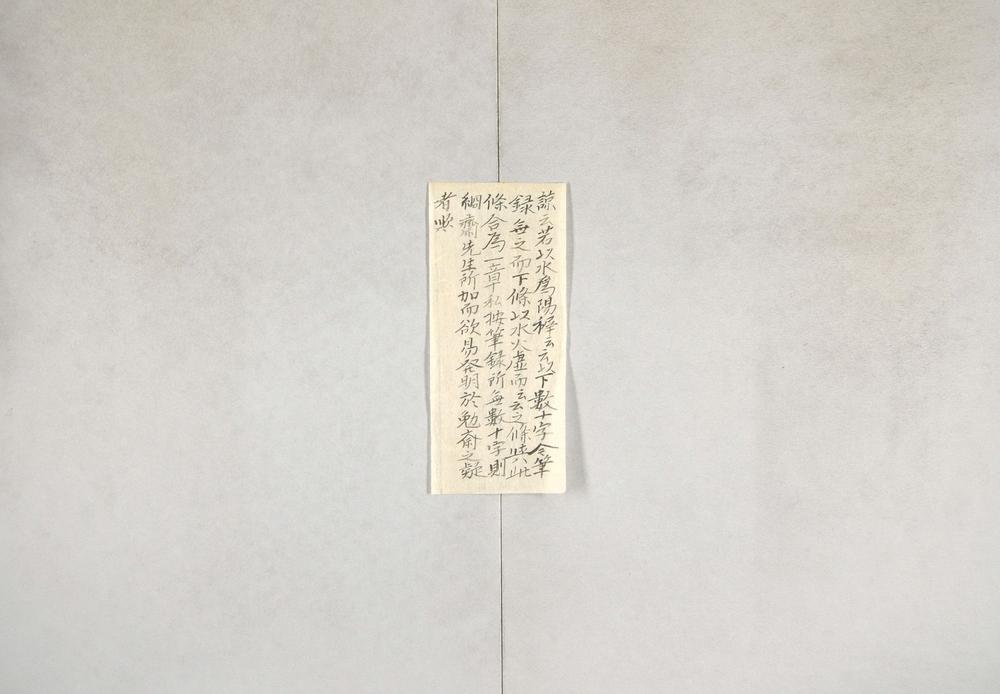 諒云若以水爲陽穉云云以下數十字今筆
録無之而下條以水火虚而云云之條與此
條合爲一章早私按筆録所無數十字則
絅齋先生所加而欲易発明於勉斎之疑
者歟